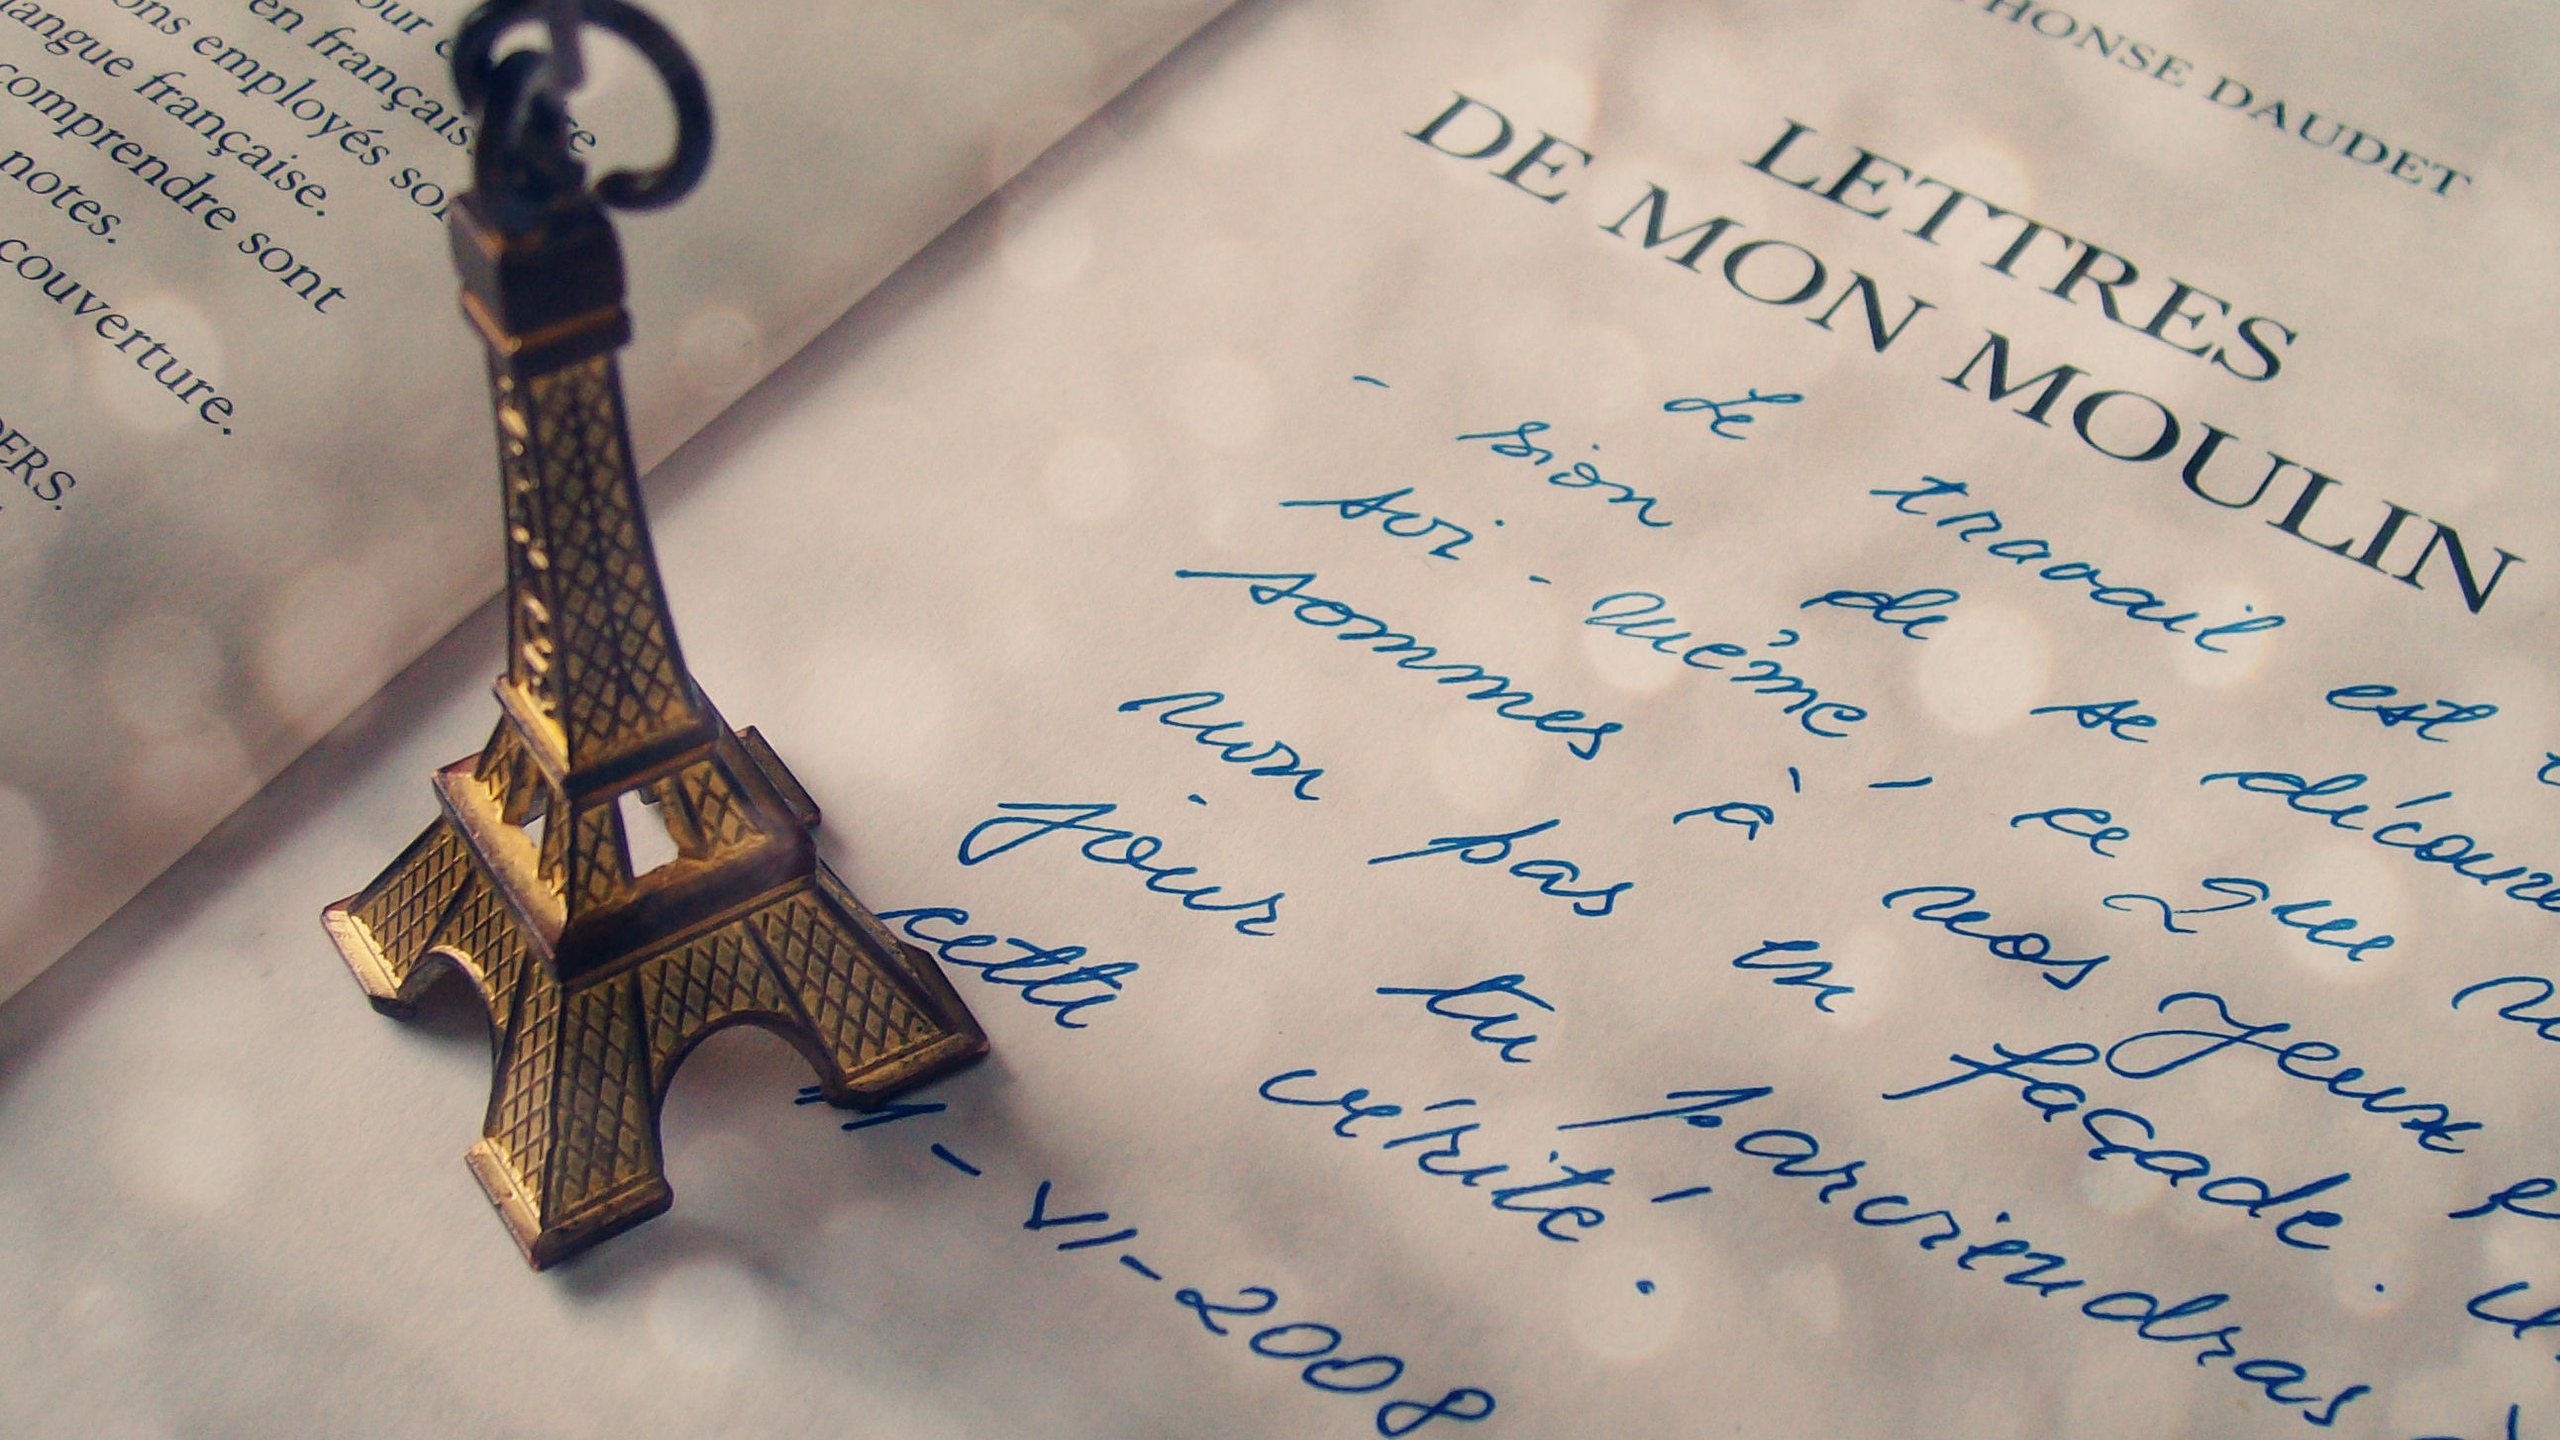 our
en français.
ons employés
langue française.
comprendre sont
notes.
couverture.
DERS.
PHONSE DAUDET
LETTRES
DE MON MOULIN
- Le travail est
sion de se découvr
soi-même, ce que
sommes à nos yeux e
non pas en façade. U
jour tu parviendras
cette vérité.
- VII-2008